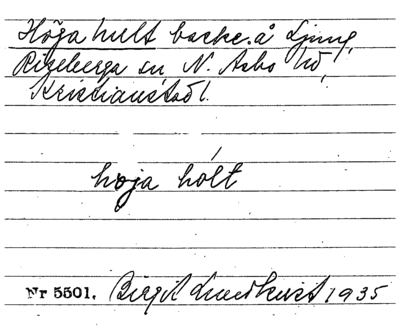 Höga hult backe å Ljung,
Riseberga sn, N. Åsbo hd,
Kristianstad l.
hoja hólt
Nr 5501. Birgit Lundkvist 1935